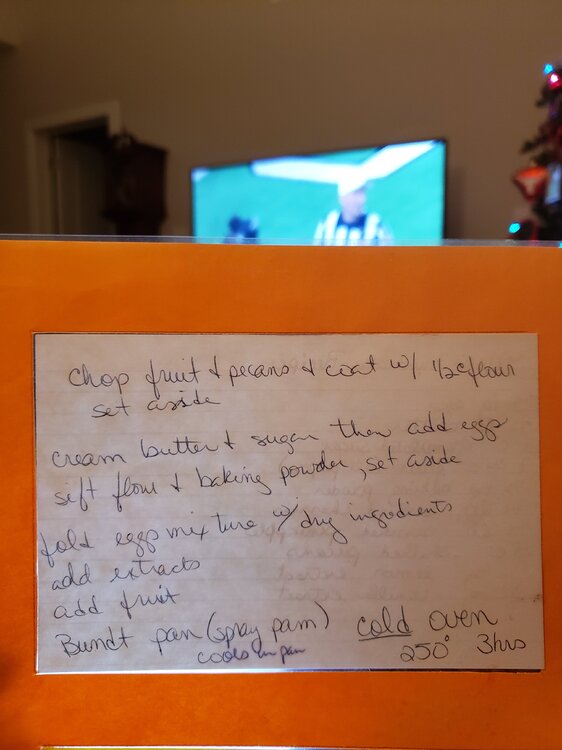 Chop fruit & pecans & coat w/ 1/2c flour
set aside
cream butter & sugar then add eggs
sift flour & baking powder, set aside
fold eggs mixture w/ dry ingredients
add extracts
add fruit
Bundt pan (spray pam) cold oven
cools in pan 250° 3hrs